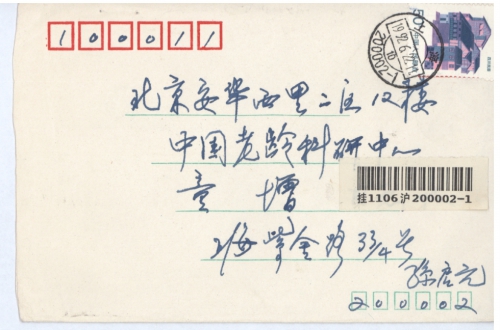 100011
200002-1
北京安华西里二区12楼
中国老龄科研中心
童增
挂1106沪200002-1
上海紫金路334号
200002